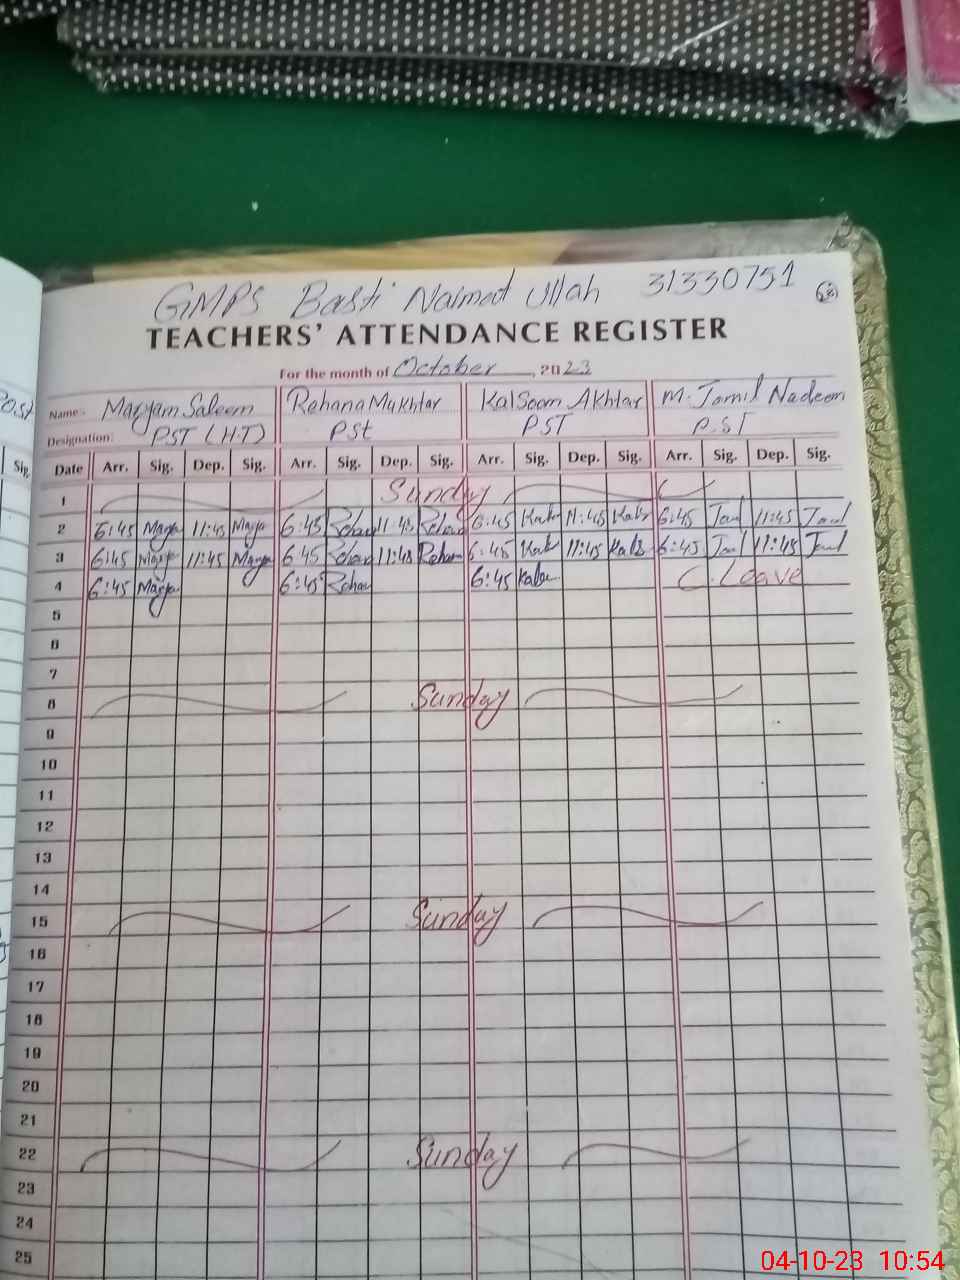 GMPS Basti Naimat Ullah 31330751
TEACHERS' ATTENDANCE REGISTER
For the month of October, 2023
Name:- Maryam Saleem Rehana Mukhtar KalSoom Akhtar M. Jamil Nadeem
Designation: PST (H.T) PSt PST P.ST
Date Arr. Sig. Dep. Sig. Arr. Sig. Dep. Sig. Arr. Sig. Dep. Sig. Arr. Sig. Dep. Sig.
1 Sunday
2 6:45 11:45 6:45 11:45 6:45 11:45 6:45 11:45
3 6:45 11:45 6:45 11:45 6:45 11:45 6:45 11:45
4 6:45 6:45 6:45 C. Leave
5
6
7
8 Sunday
9
10
11
12
13
14
15 Sunday
16
17
18
19
20
21
22 Sunday
23
24
25
04-10-23 10:54